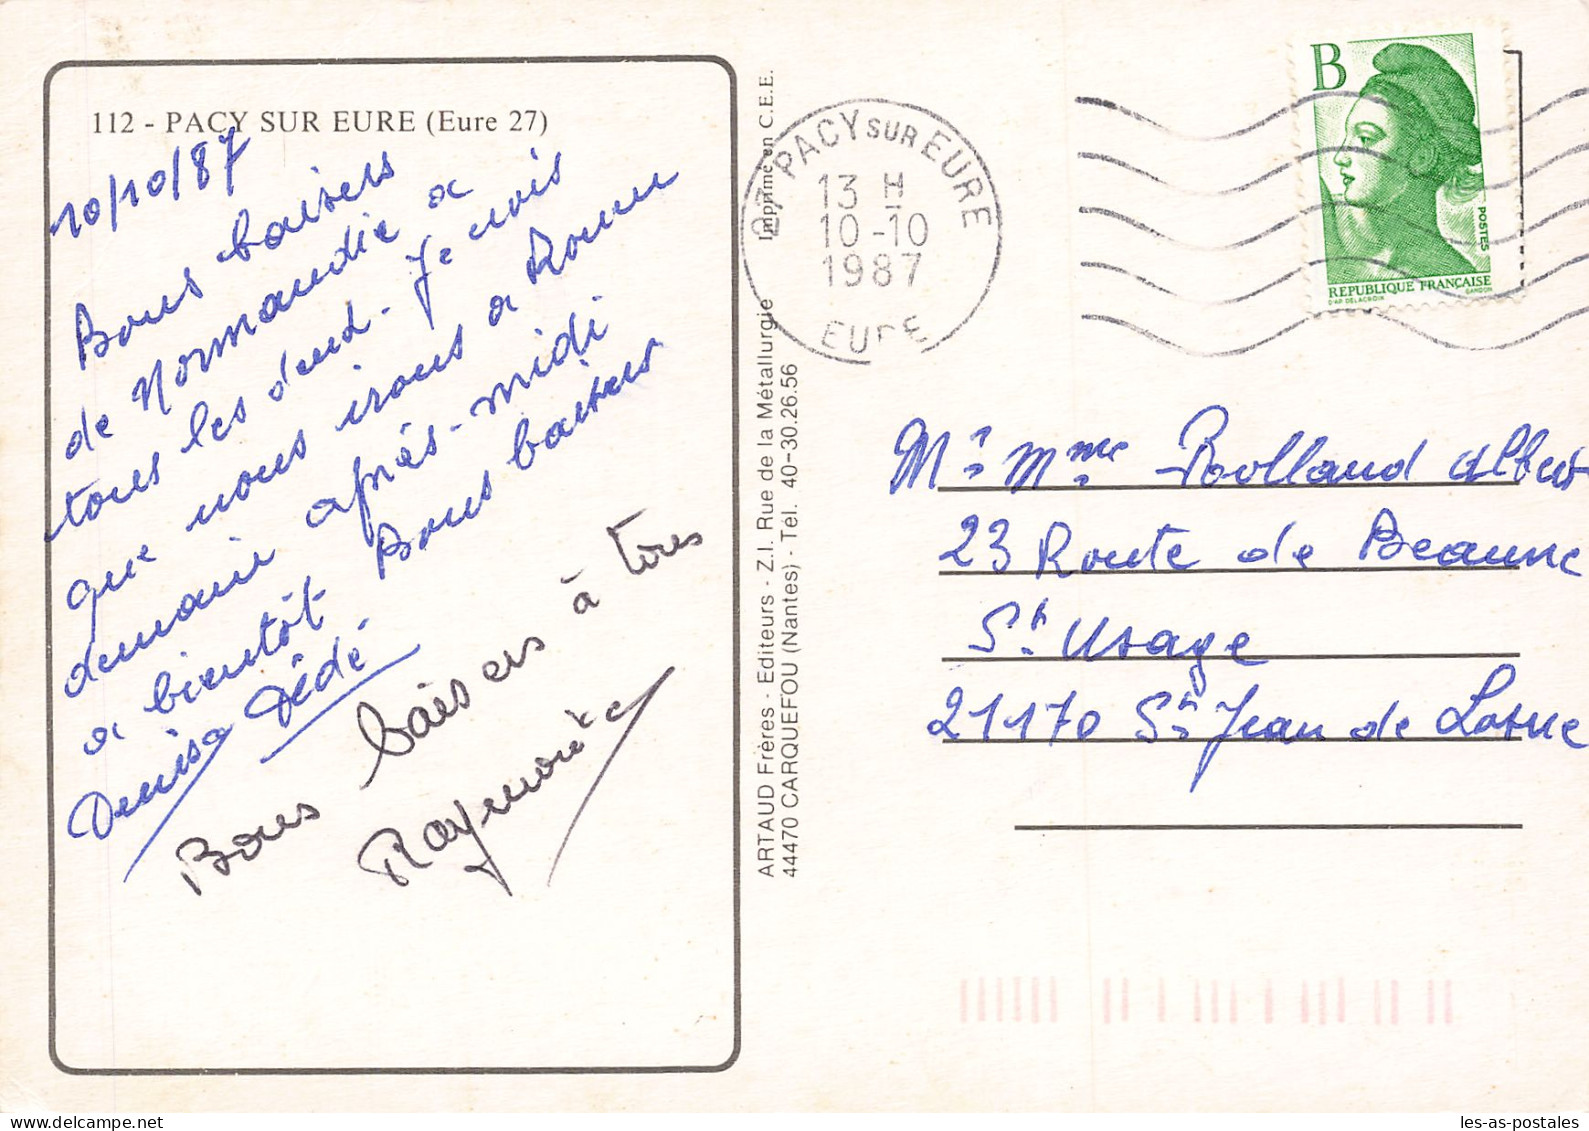 112 - PACY SUR EURE (Eure 27)
10/10/87
Bons baisers
de Normandie a
tous les deux. Je crois
que nous irons a Rouen
demain après-midi
a bientôt Bons baisers
Denise Dédé
Bons baisers à tous
Raymonde
ARTAUD Frères - Editeurs - Z.I. Rue de la Métallurgie Imprimé en C.E.E.
44470 CARQUEFOU (Nantes) - Tél. 40-30.26.56
27 PACY SUR EURE
13 H
10-10
1987
EURE
B
POSTES
REPUBLIQUE FRANÇAISE
D'AP. DELACROIX GANDON
Mr Mme Rolland Albert
23 Route de Beaune
St Usage
21170 St Jean de Losne
les-as-postales